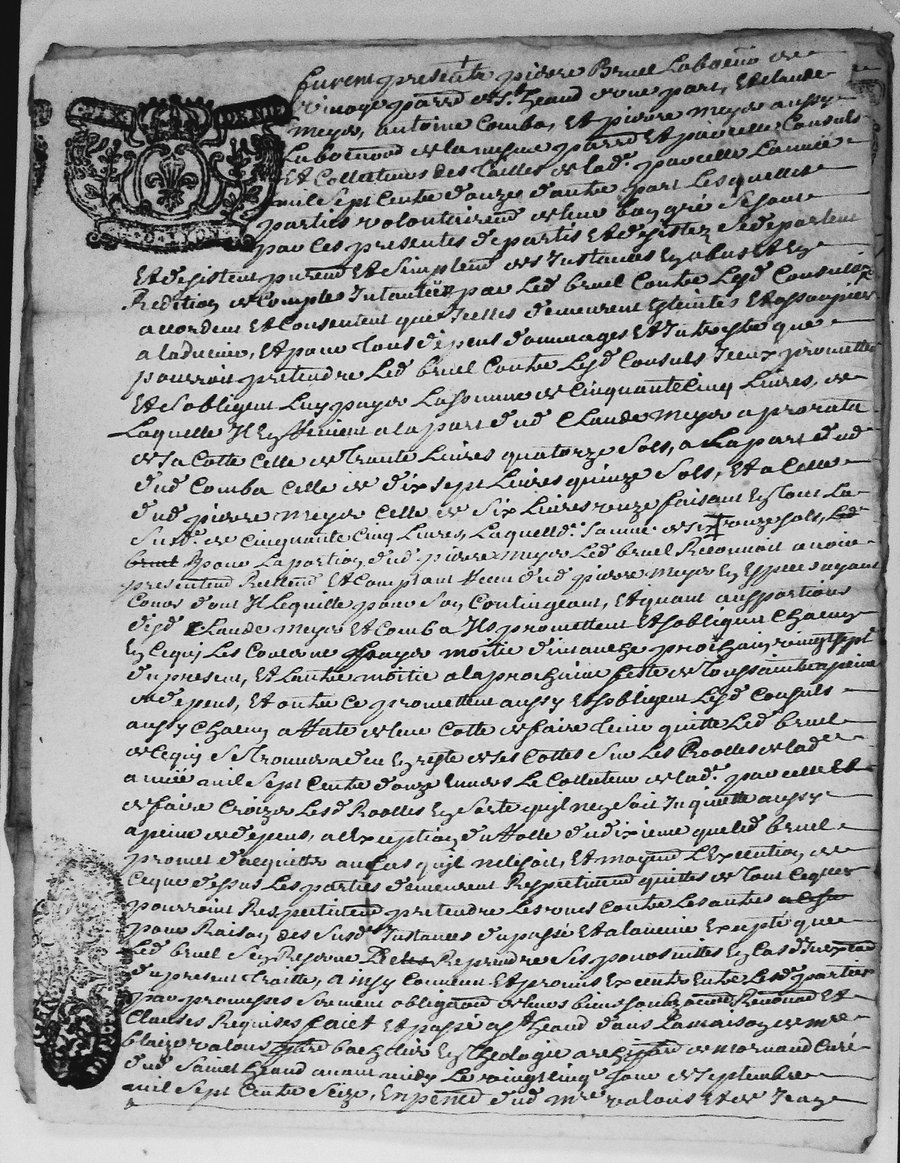 SIX DENIE
Furent presents pierre Bruel Laboeur de
parre de St heand d'une part, Et claude
Meyer, antoine Comba, Et pierre meyer aussy
Laboureurs de la mesme parre Et parcelle Consuls
Et Collecteurs des Tailles de lad. parcelle Lannée
mil Sept Cents d'onze d'autre part Lesquelles
parties volontairemt de leur bon gré Se sont
par Ces presentes departis Et desistez Se departent
Et desistent puremt Et Simplemt des Instances En abus Et En
Redition de Comptes Intantées par Led bruel Contre Lesd Consuls
accordent Et Consentent que Icelles demeurent Esteintes Et assoupies
a laduenir, Et pour Tous depens dommages Et Interests que
pourroit pretendre Led bruel Contre Lesd Consuls Iceux promettent
Et Sobligent Luy payer La Somme de Cinquante Cinq Livres, de
Laquelle Il En Revient a la part dud Claude Meyer a prorata
de Sa Cotte Celle de Trante Livres quatorze Sols, a La part dud
dud Comba Celle de dix sept Livres quinze Sols, Et a Celle
dud pierre Meyer Celle de Six Livres onze faisant En tout La
Susd. de Cinquante Cinq Livres, Laquelle. Somme. de Six onze sols, Led
bruel pour La portion dud. pierre meyer Led bruel Reconnoit avoir
presentemt Receue Et Comptant dud pierre meyer En Especes ayant
Cours dont Il Le quitte pour Son Contingeant, Et quant aux portions
desd Claude Meyer Et Comba Ils promettent Et Sobligent Chacun
En Ce quy Les Concerne payer moitié dimanche prochain vingt sept
du present, Et Lautre moitié a la prochaine feste de Toussaints a peine
de depens, Et outre Ce promettent aussy Et Sobligent Lesd Consuls
aussy Chacun a Rate de leur Cotte de faire Tenir quitte Led bruel
de Ce quy Se Trouvera deu En reste de Ses Cottes Sur Les Roolles de lad
année mil Sept Cents d'onze Envers Le Collecteur de lad. parcelle Et
de faire Croizer Lesd Roolles En Sorte quyl nen Soit Inquietté aussy
a peine de depens, a lexception du Rolle du dixieme que led bruel
promet d'acquitter au Cas quyl ne le soit, Et moyent L'Execution de
Ce que dessus Les parties demeurent Respectivemt quittes de Tout Ce quelles
pourroint Respectivemt pretendre Les unes Contre Les autres
pour Raison des Susd. Instances du passé Et a lavenir Excepté que
Led bruel Sen Reserve De Reprendre Ses poursuittes En Cas d'inexecution
du present Traitté, ainsy Convenu Et promis Entre Lesd parties
par promesses Serment obligations de leurs biens
Clauses Requises fait Et passé a St heand dans La maison de mre
blaize valous bachelier En Theologie archiptre de mornand Curé
dud Saint heand avant midy Le vingt cinq Jour de Septembre
mil Sept Cents Seize, En presence dud mre valous Et de Jean